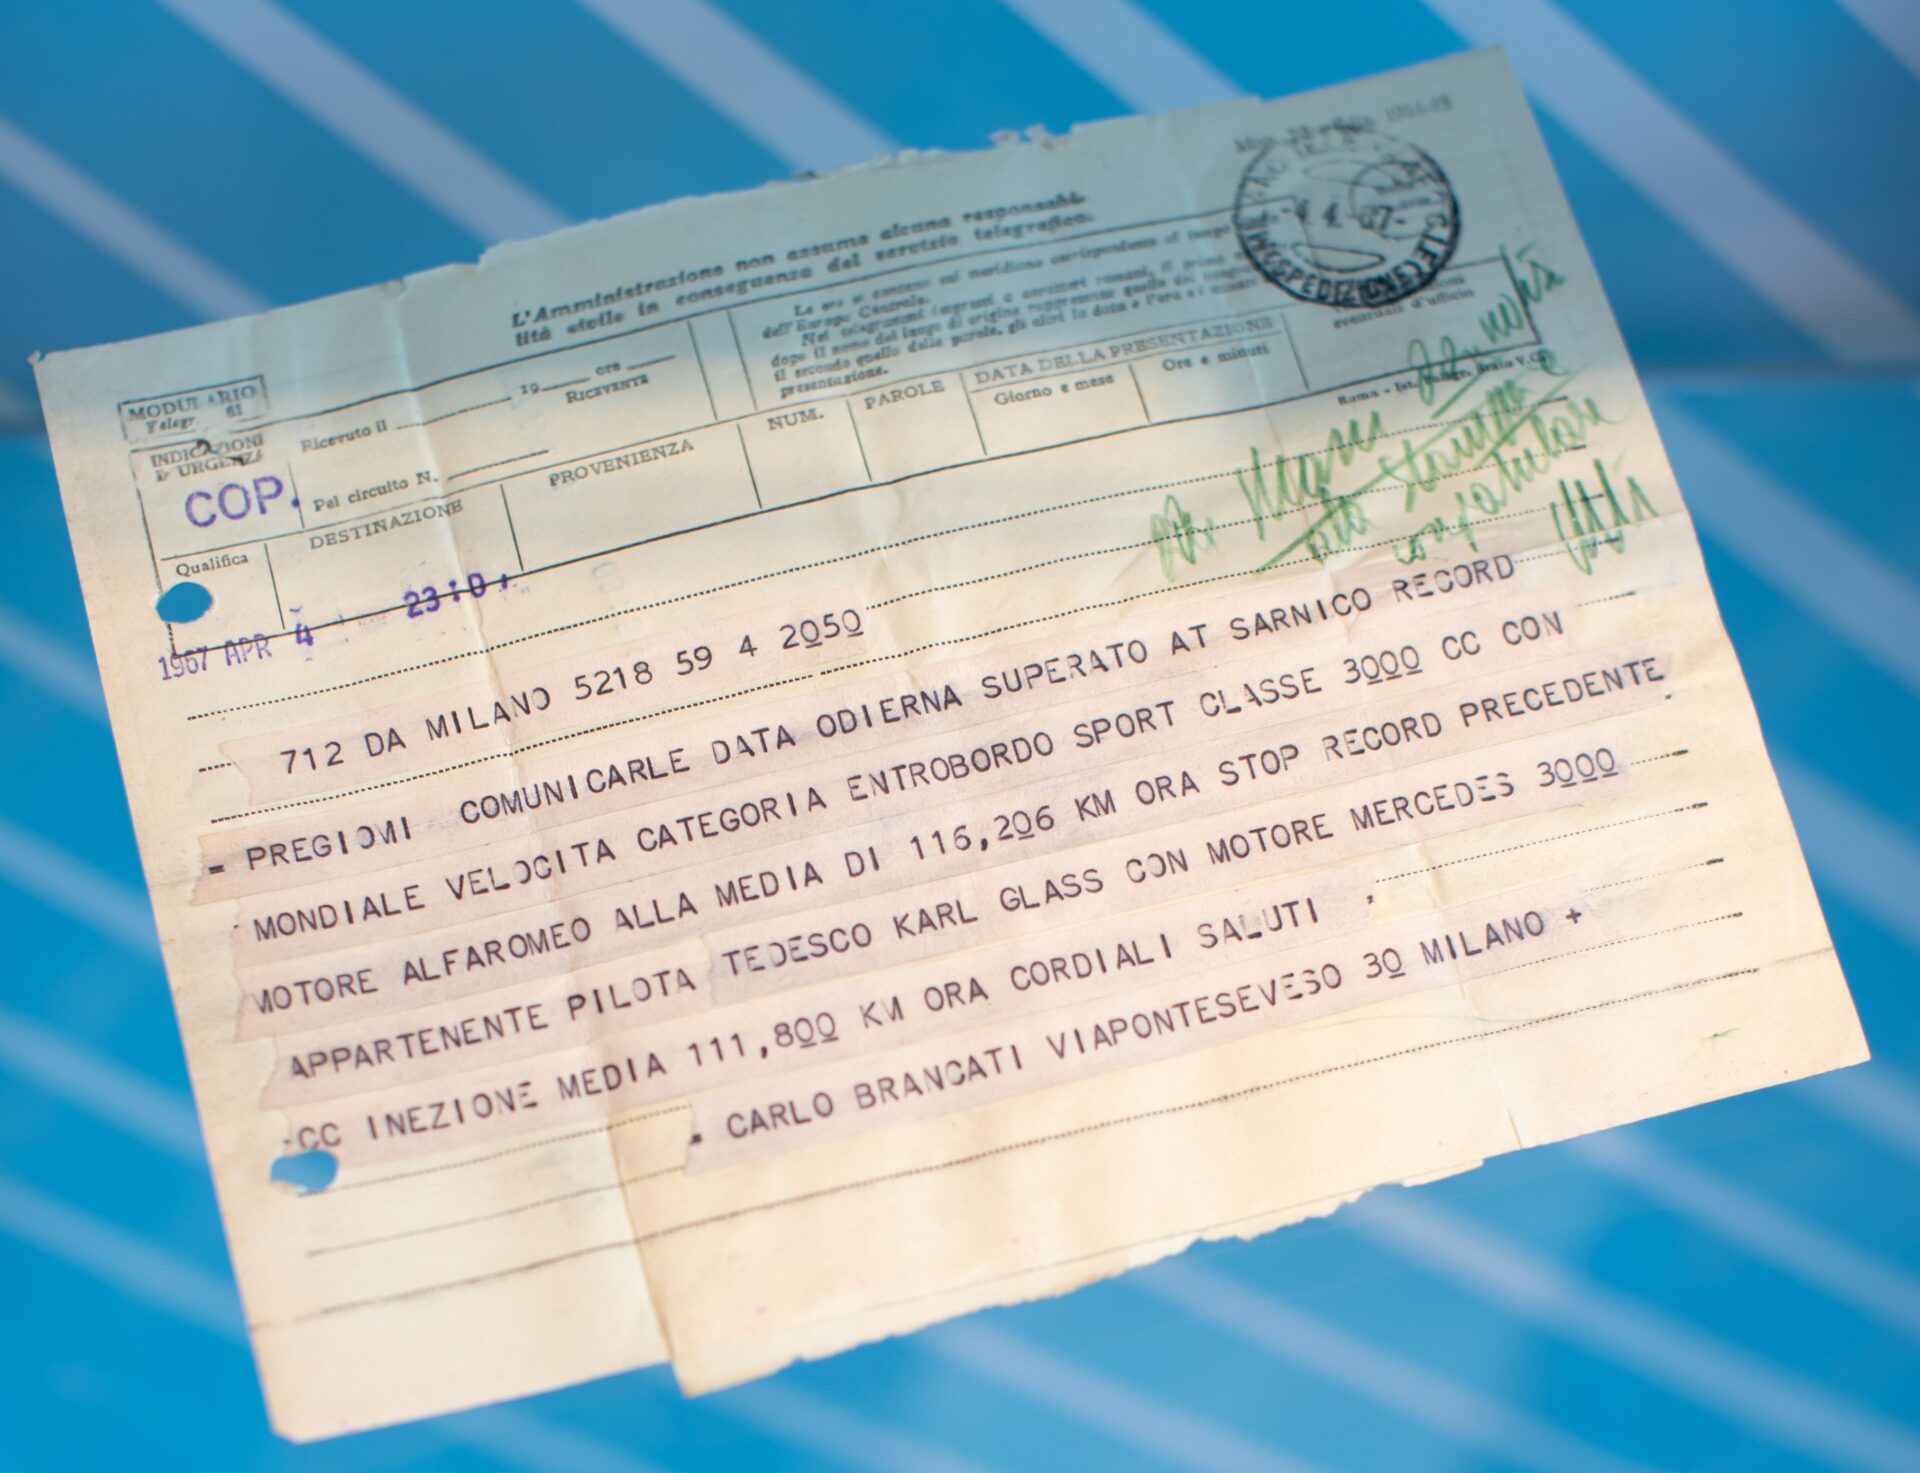 L'Amministrazione non assume alcuna responsabi-
lità civile in conseguenza del servizio telegrafico.
MODULARIO
Telegr 61
INDICAZIONI
D' URGENZA
COP.
Ricevuto il 19 ore
RICEVENTE
Pel circuito N.
Le ore si contano sul meridiano corrispondente al tempo
dell'Europa Centrale.
Nei telegrammi impressi a caratteri romani, il primo
dopo il nome del luogo di origine rappresenta quello del
il secondo quello delle parole, gli altri la data e l'ora e i minuti
presentazione.
eventuali d'ufficio
Qualifica
DESTINAZIONE
PROVENIENZA
NUM.
PAROLE
DATA DELLA PRESENTAZIONE
Giorno e mese
Ore e minuti
Roma - Ist. Poligr. Stato V.C.
-4.4.67-
SPEDIZIONE
1967 APR 4 2310
712 DA MILANO 5218 59 4 2050
= PREGIOMI COMUNICARLE DATA ODIERNA SUPERATO AT SARNICO RECORD
MONDIALE VELOCITA CATEGORIA ENTROBORDO SPORT CLASSE 3000 CC CON
MOTORE ALFAROMEO ALLA MEDIA DI 116,206 KM ORA STOP RECORD PRECEDENTE
APPARTENENTE PILOTA TEDESCO KARL GLASS CON MOTORE MERCEDES 3000
CC INEZIONE MEDIA 111,800 KM ORA CORDIALI SALUTI
= CARLO BRANCATI VIAPONTESEVESO 30 MILANO +